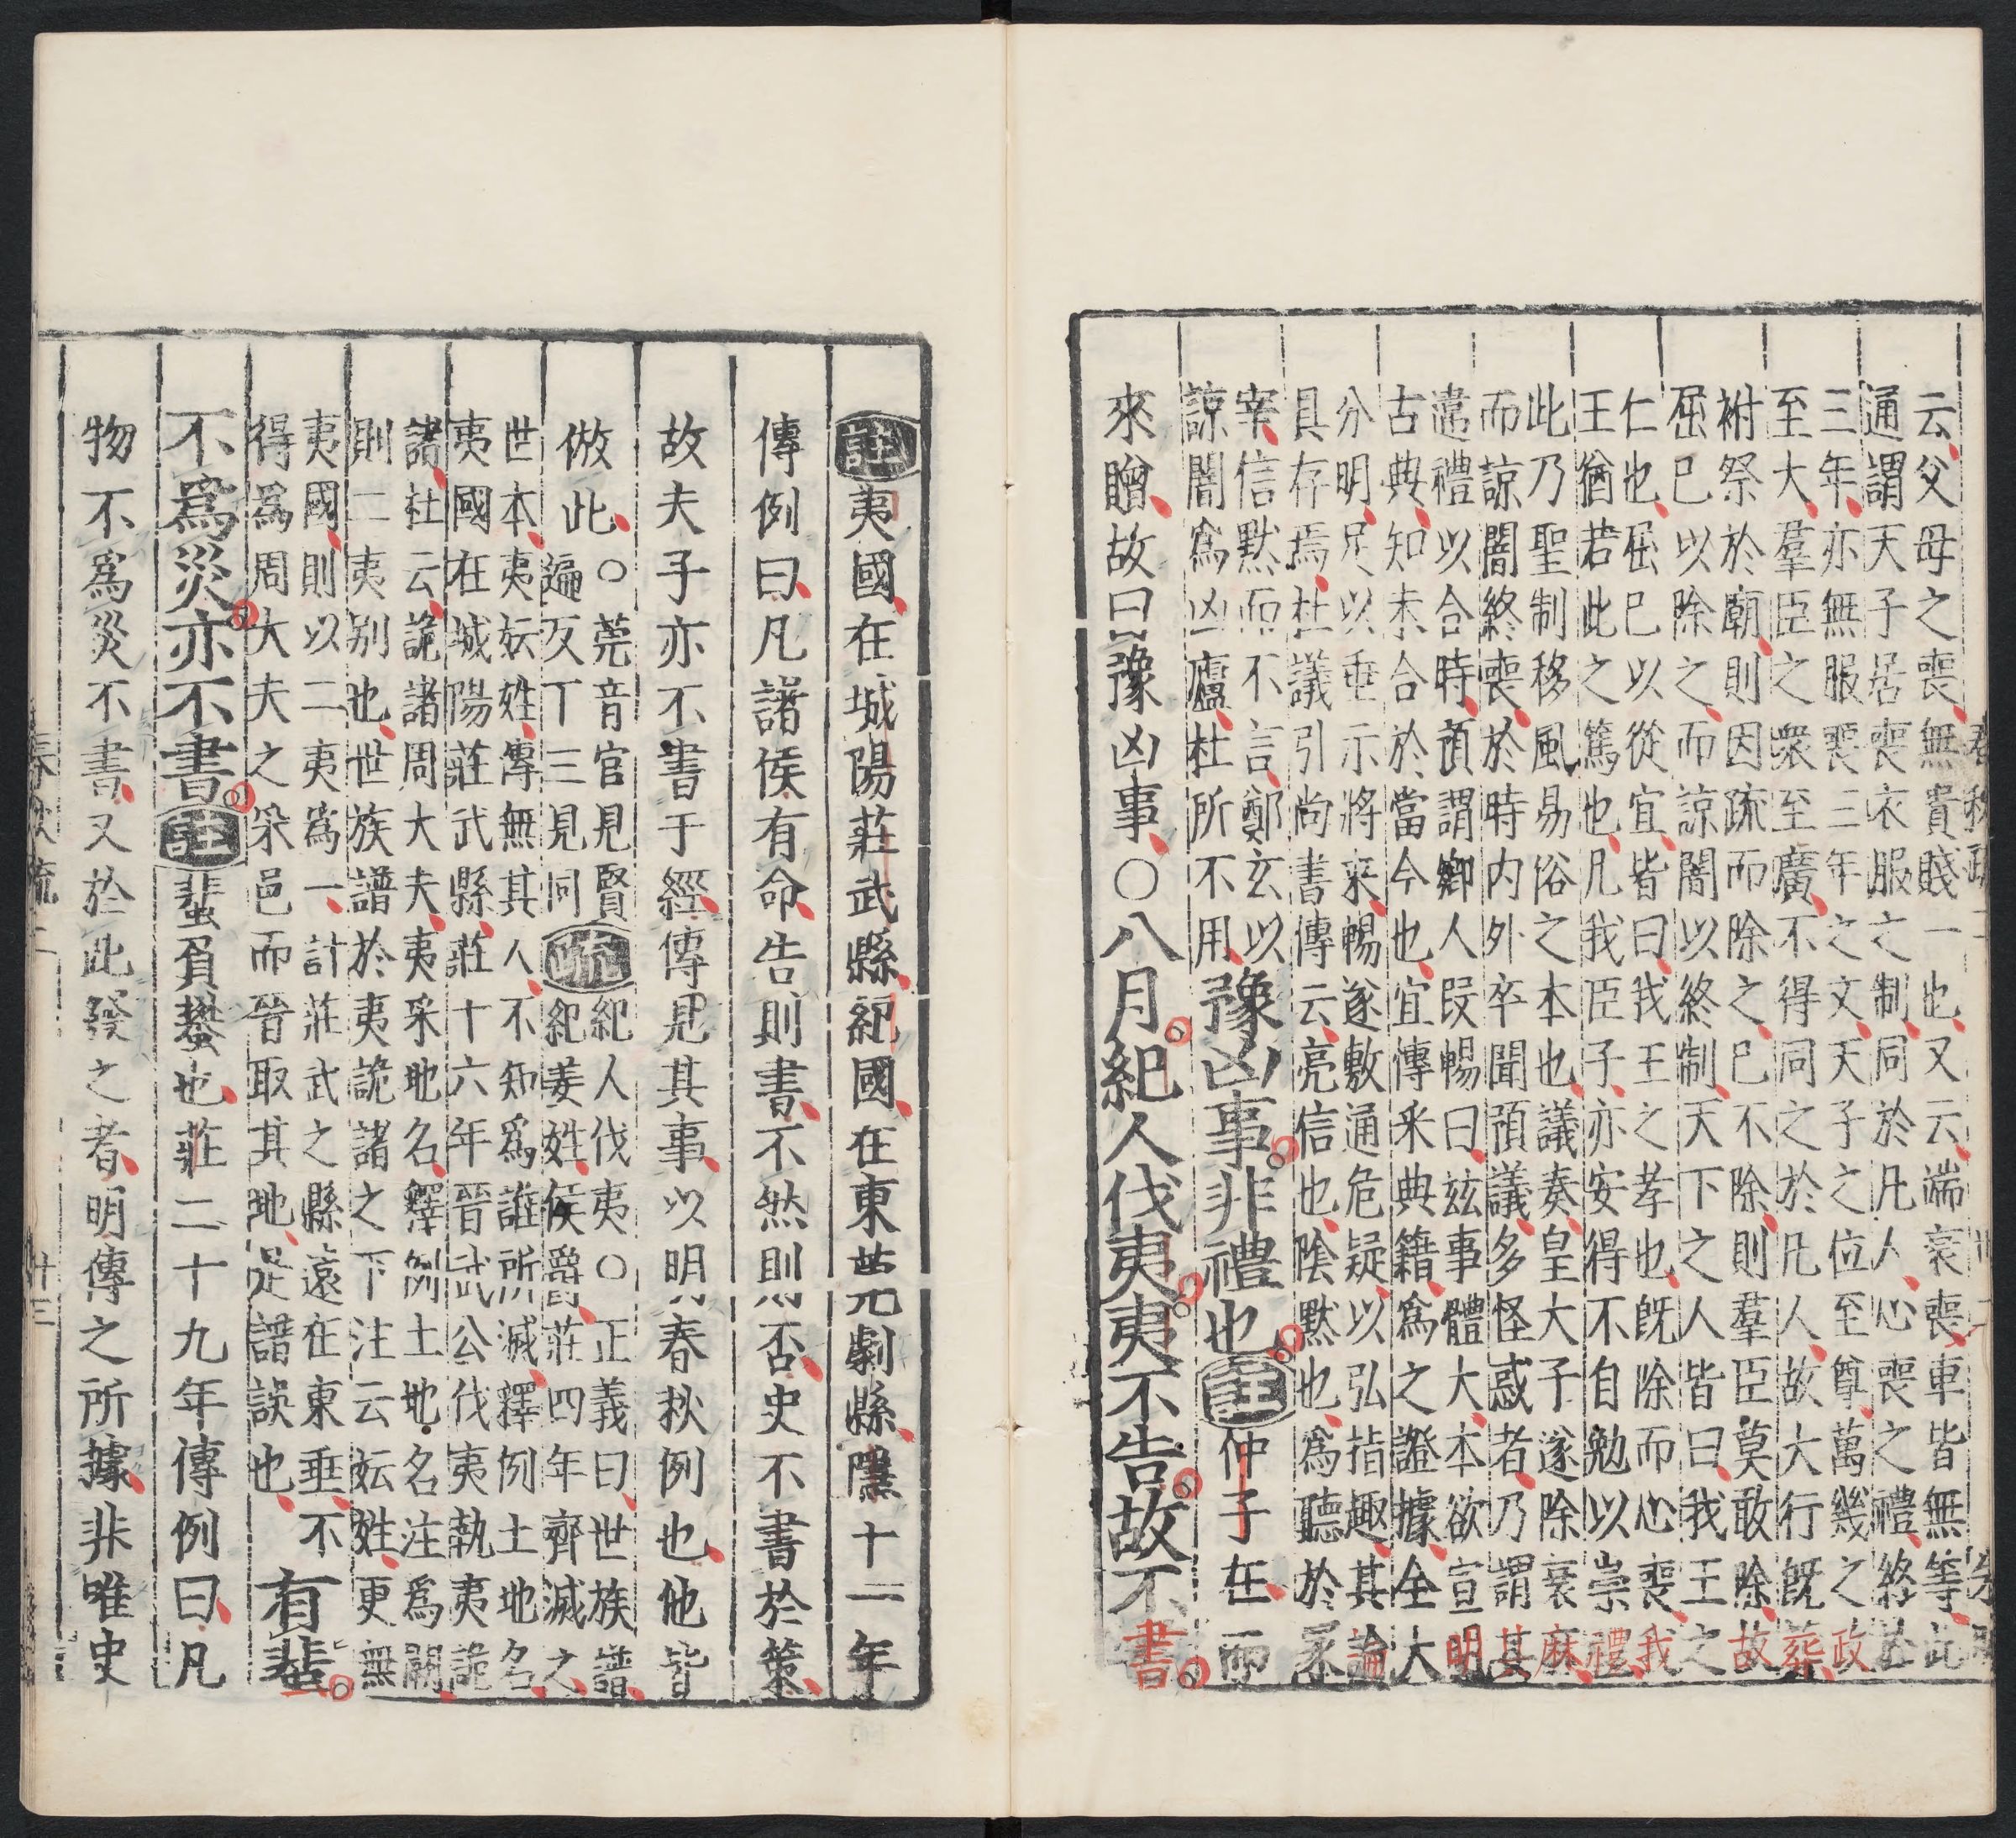 云父母之喪無貴賤一也又云端衰喪車皆無等此
通謂天子居喪衣服之制同於凡人心喪之禮終於
三年亦無服喪三年之文天子之位至尊萬幾之政
至大羣臣之衆至廣不得同之於凡人故大行既葬
祔祭於廟則因疏而除之已不除則羣臣莫敢除故
屈已以除之而諒闇以終制天下之人皆曰我王之
仁也屈已以從宜皆曰我王之孝也既除而心喪我
王猶若此之篤也凡我臣子亦安得不自勉以崇禮
此乃聖制移風易俗之本也議奏皇大子遂除衰麻
而諒闇終喪於時内外卒聞預議多怪惑者乃謂其
違禮以合時預謂鄉人叚暢曰玆事體大本欲宣明
古典知未合於當今也宜傳采典籍爲之證據全大
分明足以垂示將來暢遂敷通危疑以弘指趣其論
具存焉杜議引尚書傳云亮信也陰默也爲聽於冡
宰信默而不言鄭玄以
諒闇爲凶廬杜所不用
豫凶事非禮也註仲子在而
來贈故曰豫凶事○八月紀人伐夷夷不告故不書
註夷國在城陽莊武縣紀國在東莞劇縣隱十一年
傳例曰凡諸侯有命告則書不然則否史不書於策
故夫子亦不書于經傳見其事以明春秋例也他皆
倣此
○莞音官見賢
遍反丁三見同
疏
紀人伐夷○正義曰世族譜
紀姜姓侯爵莊四年齊滅之
世本夷妘姓傳無其人不知爲誰所滅釋例土地名
夷國在城陽莊武縣莊十六年晉武公伐夷執夷詭
諸杜云詭諸周大夫夷采地名釋例土地名注爲闕
則二夷别也世族譜於夷詭諸之下注云妘姓更無
夷國則以二夷爲一計莊武之縣遠在東垂不
得爲周大夫之采邑而晉取其地是譜誤也
有蜚
不爲災亦不書註蜚負蠜也莊二十九年傳例曰凡
物不爲災不書又於此發之者明傳之所據非唯史